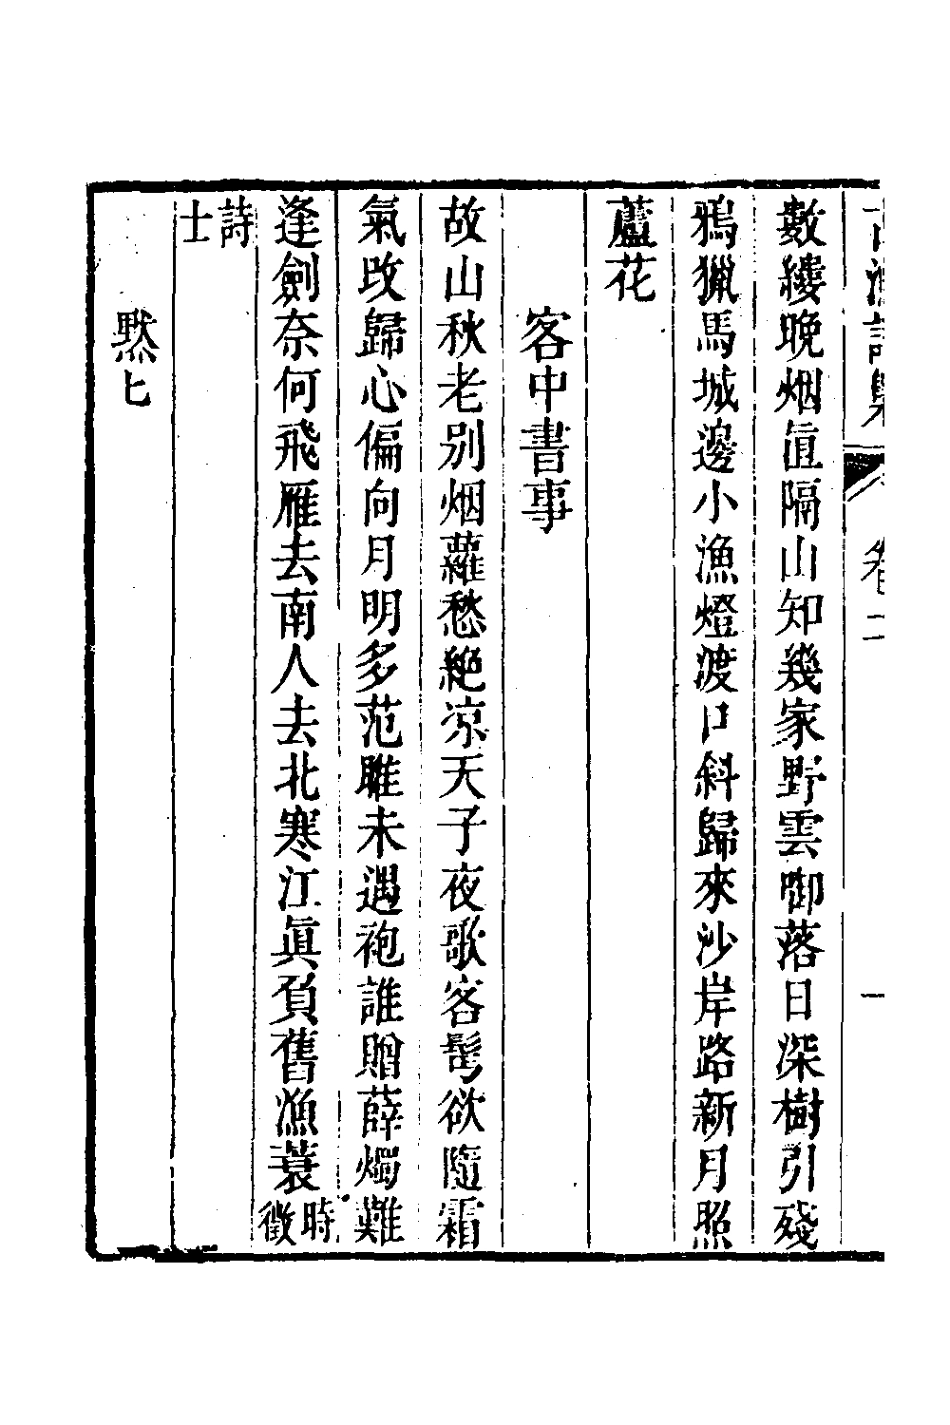 數縷晚烟直隔山知幾家野雲啣落日深樹引殘
鴉獵馬城邊小漁燈渡口斜歸來沙岸路新月照
蘆花
客中書事
故山秋老別烟蘿愁絶凉天子夜歌客髩欲隨霜
氣改歸心偏向月明多范雎未遇袍誰贈薛燭難
逢劍奈何飛雁去南人去北寒江眞負舊漁蓑時徵
詩士
㷊七
卷二
一